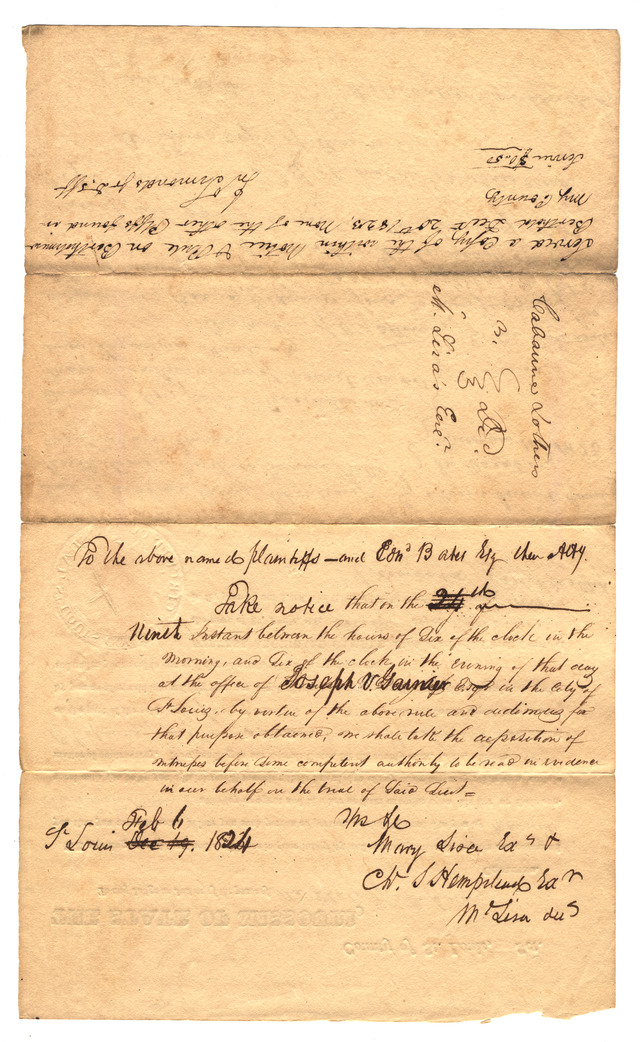 Served a Copy of the within Notice & Rule on Bartholomew
Berthold Decr 20th 1823, None of the other Plffs found in
my County
Jn Simonds jr D. Shff
Service $0.50
Cabanne & others
vs.
Dedi
M. Lisa's Exrs
To the above named plaintiffs — and Edwd Bates Esq their Atty.
Take notice that on the 24th
Ninth Instant between the hours of Six of the clock in the
morning, and Six of the clock in the evening of that day
at the office of Joseph V. Garnier Esqr in the City of
St Louis, by virtue of the above rule and dedimus for
that purpose obtained, we shall take the deposition of
witnesses before some competent authority to be read in evidence
in our behalf on the trial of Said Suit =
Feb 6
St Louis Dec 19. 1824
Yrs &c
Mary Lisa Exs &
Ch. S Hempstead Exr
Ml Lisa decd
THE STATE OF MISSOURI
County of St. Louis